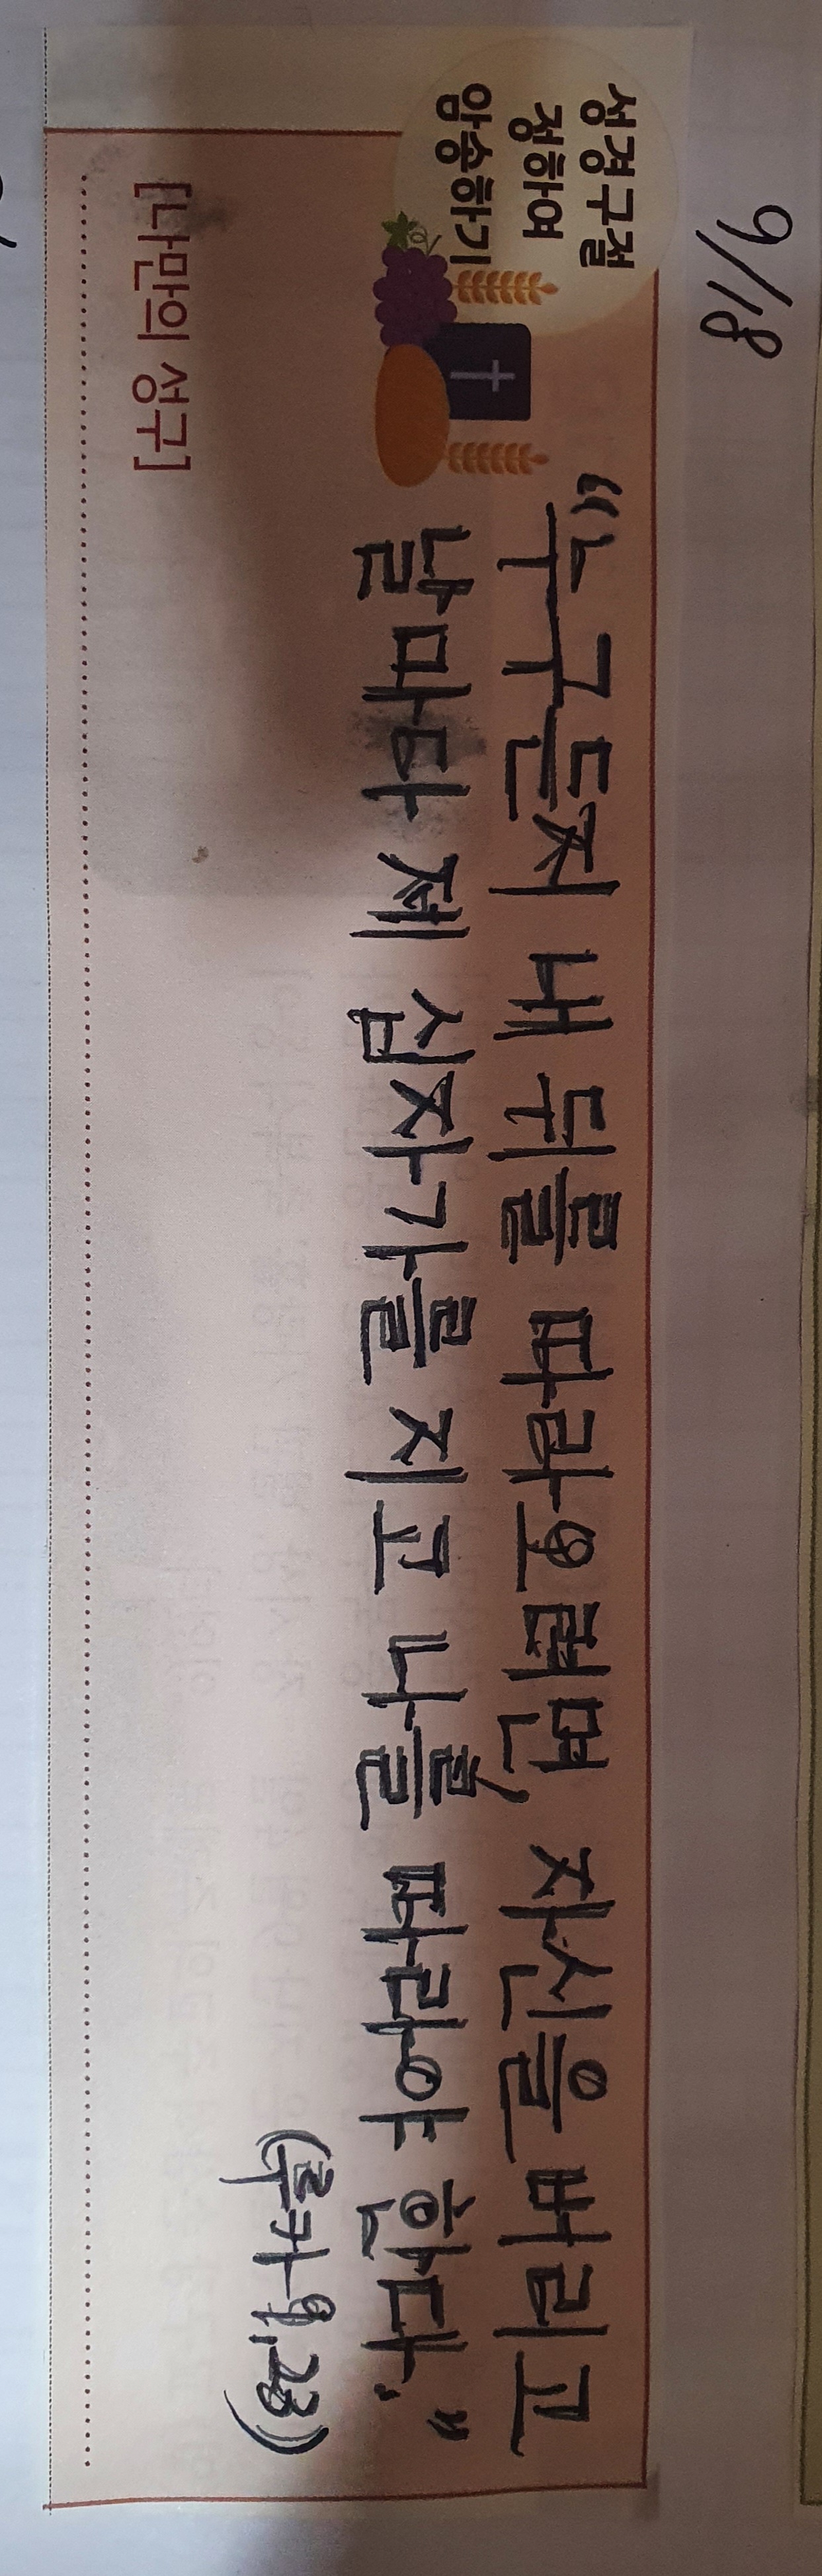 9/18
성경구절
정하여
암송하기
"누구든지 내 뒤를 따라오려면, 자신을 버리고
날마다 제 십자가를 지고 나를 따라야 한다."
(루카 9,23)
[나만의 성구]